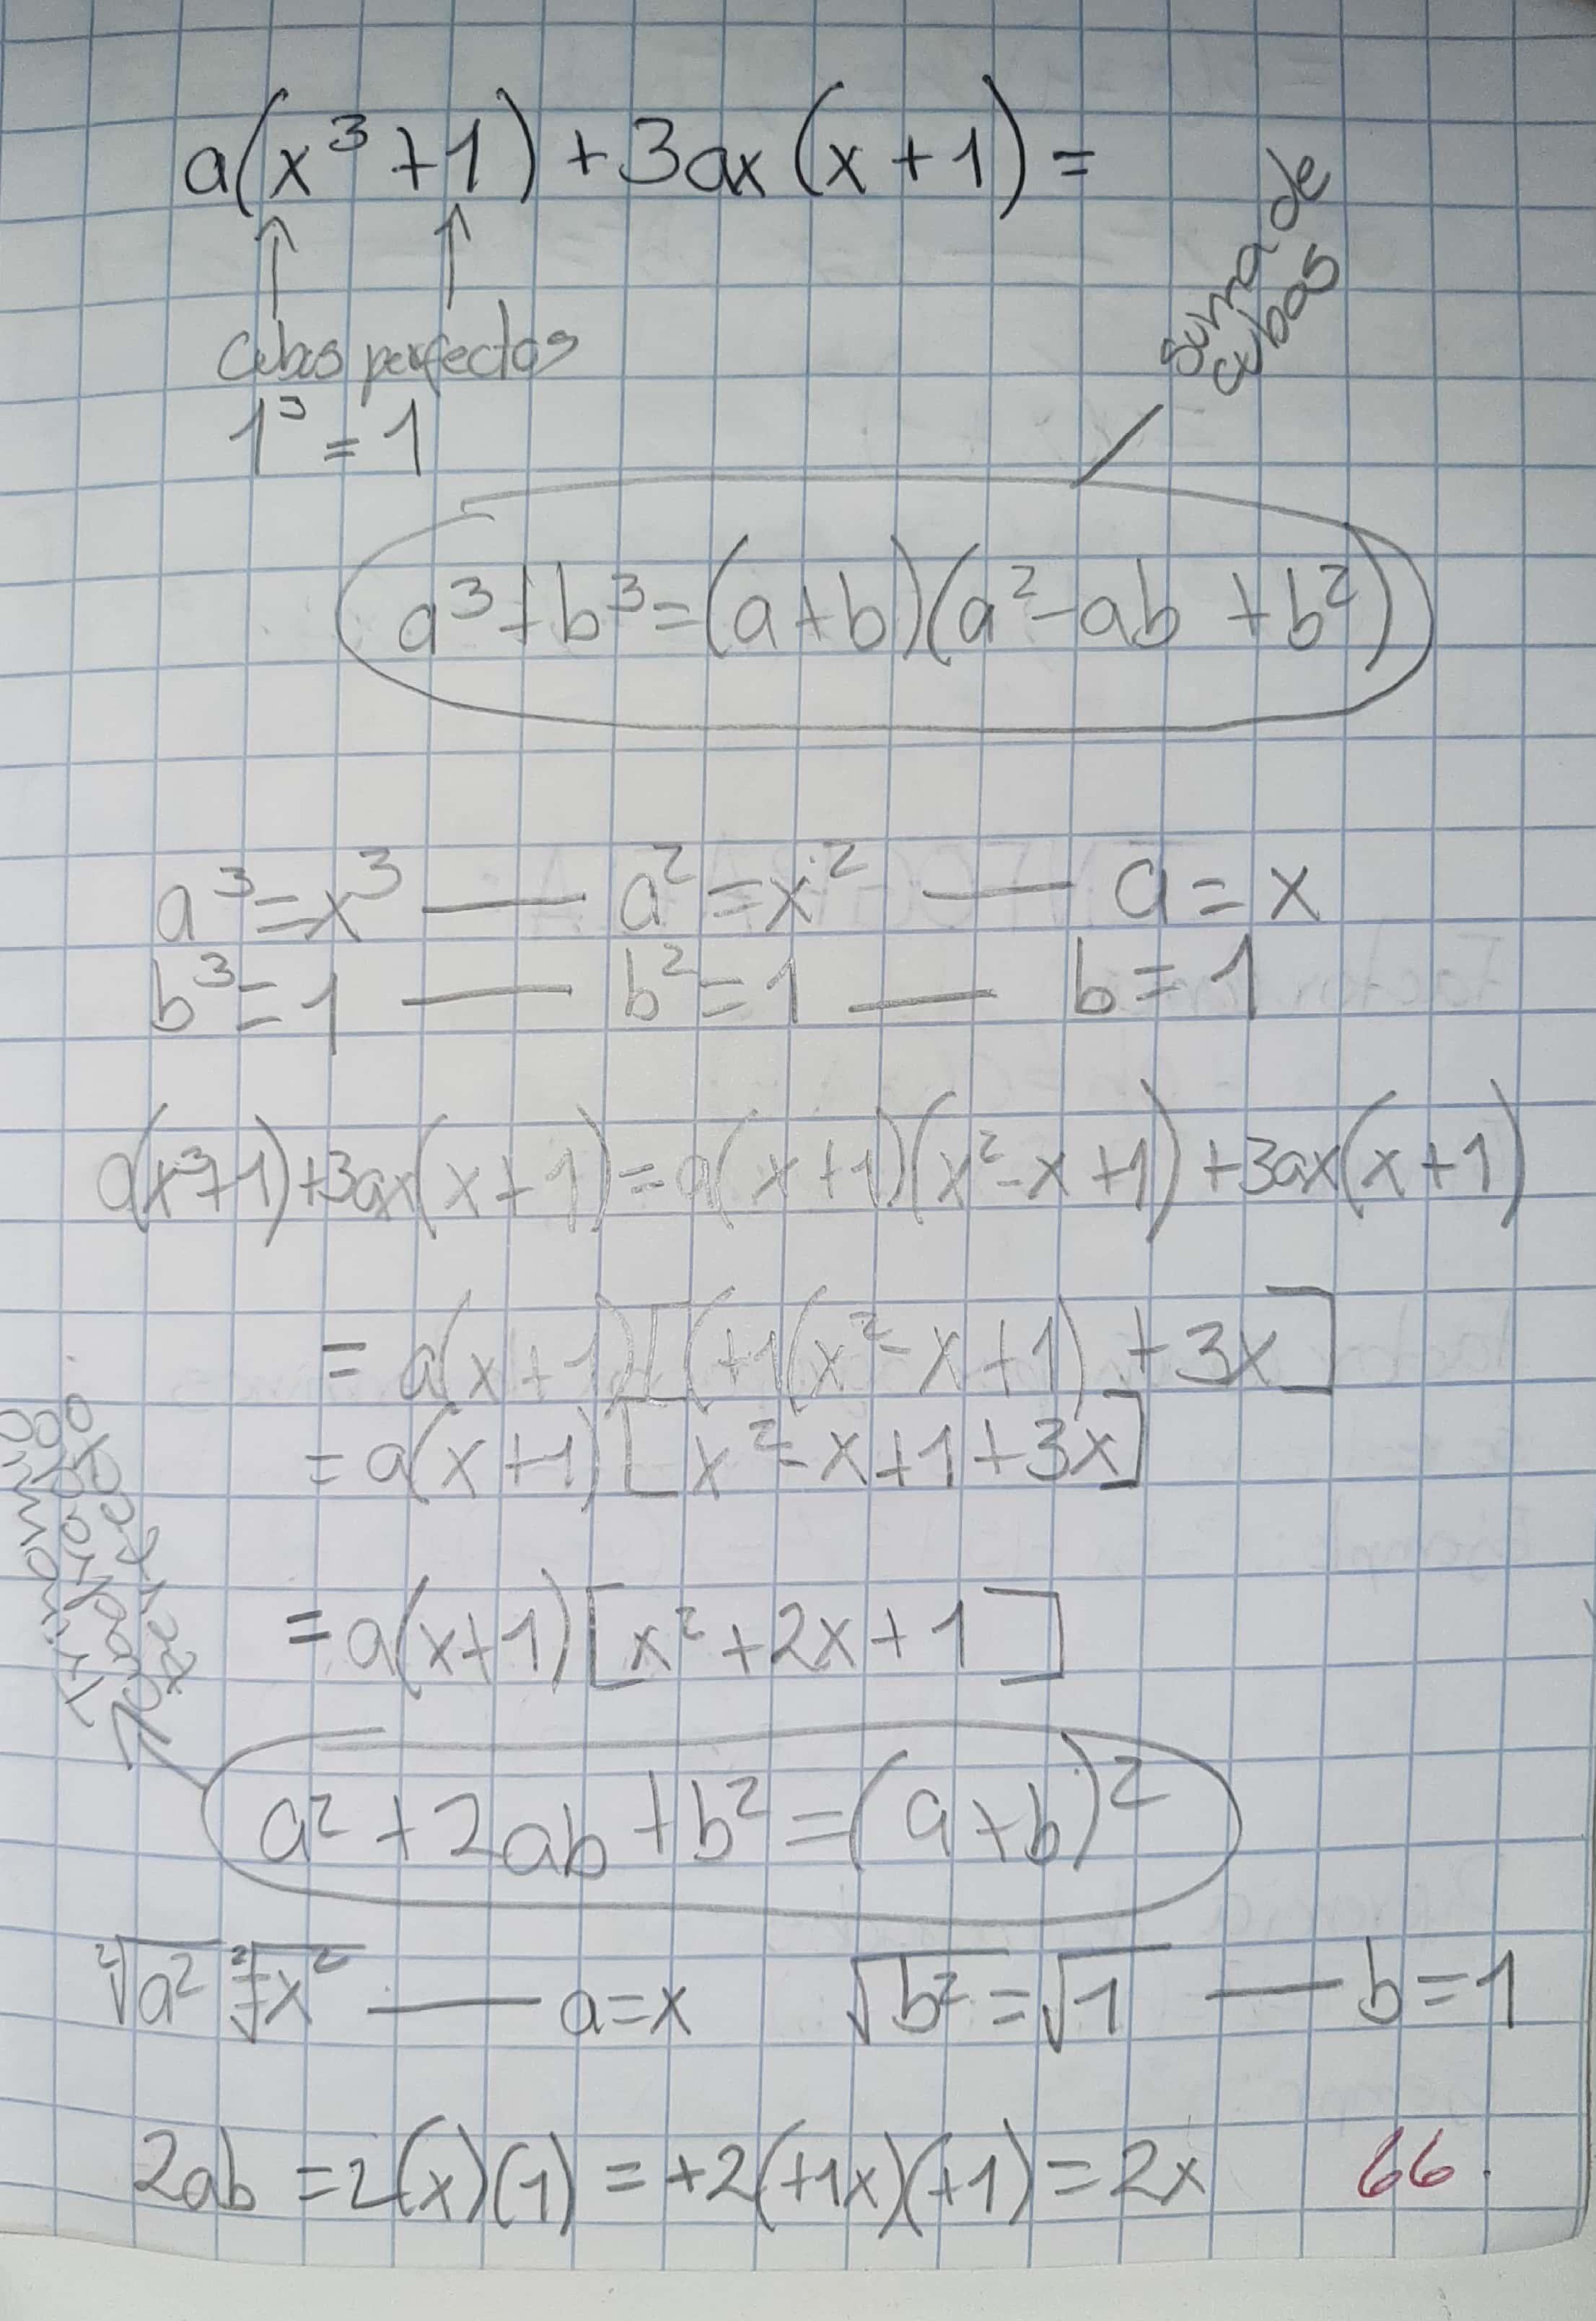 a(x³+1)+3ax(x+1)=
Cubos perfectos
1³=1
suma de
cubos
a³+b³=(a+b)(a²-ab+b²)
a³=x³ — a²=x² — a=x
b³=1 — b²=1 — b=1
a(x³+1)+3ax(x+1)=a(x+1)(x²-x+1)+3ax(x+1)
=a(x+1)[(+1(x²-x+1)+3x]
=a(x+1)[x²-x+1+3x]
=a(x+1)[x²+2x+1]
Trinomio
cuadrado
perfecto
a²+2ab+b²=(a+b)²
²√a²=²√x² — a=x √b²=√1 — b=1
2ab=2(x)(1)=+2(+1x)(+1)=2x
66.